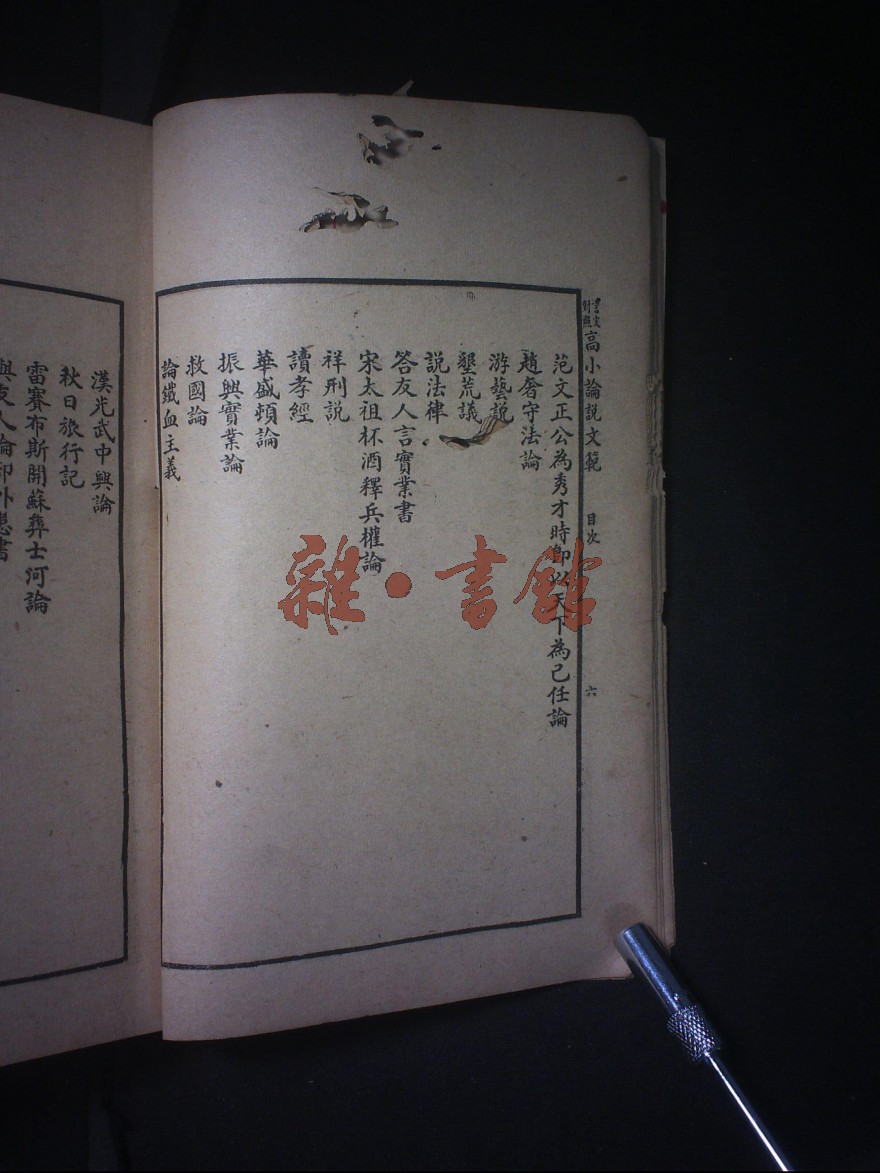 高小論説文範 目次 六
范文正公為秀才時即以天下為己任論
趙奢守法論
游藝説
墾荒議
説法律
答友人言實業書
宋太祖杯酒釋兵權論
祥刑説
讀孝經
華盛頓論
振興實業論
救國論
論鐵血主義
漢光武中興論
秋日旅行記
雷賽布斯開蘇彝士河論
與友人論
雜·書館